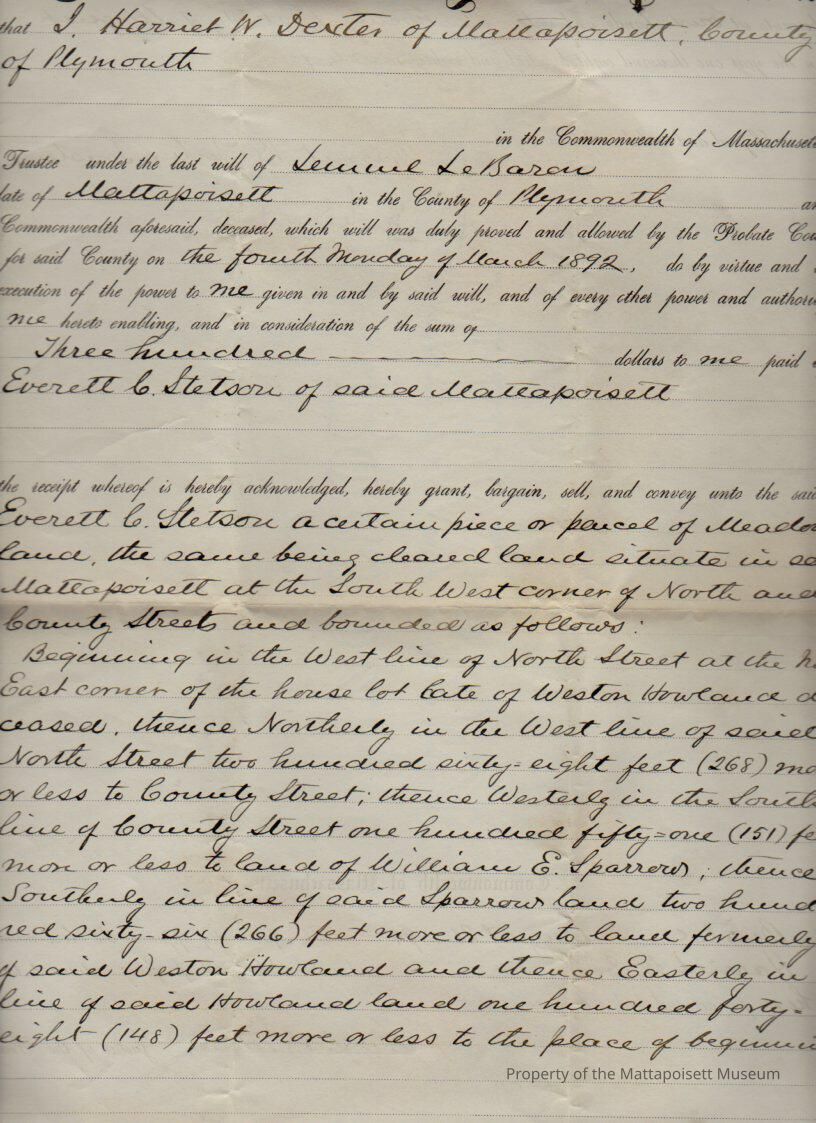 that I, Harriet W. Dexter of Mattapoisett, County
of Plymouth
in the Commonwealth of Massachusett
Trustee under the last will of Lemuel LeBaron
late of Mattapoisett in the County of Plymouth an
Commonwealth aforesaid, deceased, which will was duly proved and allowed by the Probate Cou
for said County on the fourth Monday of March 1892, do by virtue and
execution of the power to me given in and by said will, and of every other power and authori
me hereto enabling, and in consideration of the sum of
Three hundred dollars to me paid
Everett C. Stetson of said Mattapoisett
the receipt whereof is hereby acknowledged, hereby grant, bargain, sell, and convey unto the said
Everett C. Stetson a certain piece or parcel of Meadow
land, the same being cleared land situate in sa
Mattapoisett at the South West corner of North and
County Streets and bounded as follows:
Beginning in the West line of North Street at the N
East corner of the house lot late of Weston Howland d
ceased, thence Northerly in the West line of said
North Street two hundred sixty-eight feet (268) mo
or less to County Street; thence Westerly in the South
line of County Street one hundred fifty=one (151) fe
more or less to land of William E. Sparrow; thence
Southerly in line of said Sparrow land two hund
red sixty-six (266) feet more or less to land formerly
of said Weston Howland and thence Easterly in
line of said Howland land one hundred forty=
eight (148) feet more or less to the place of beginnin
Property of the Mattapoisett Museum